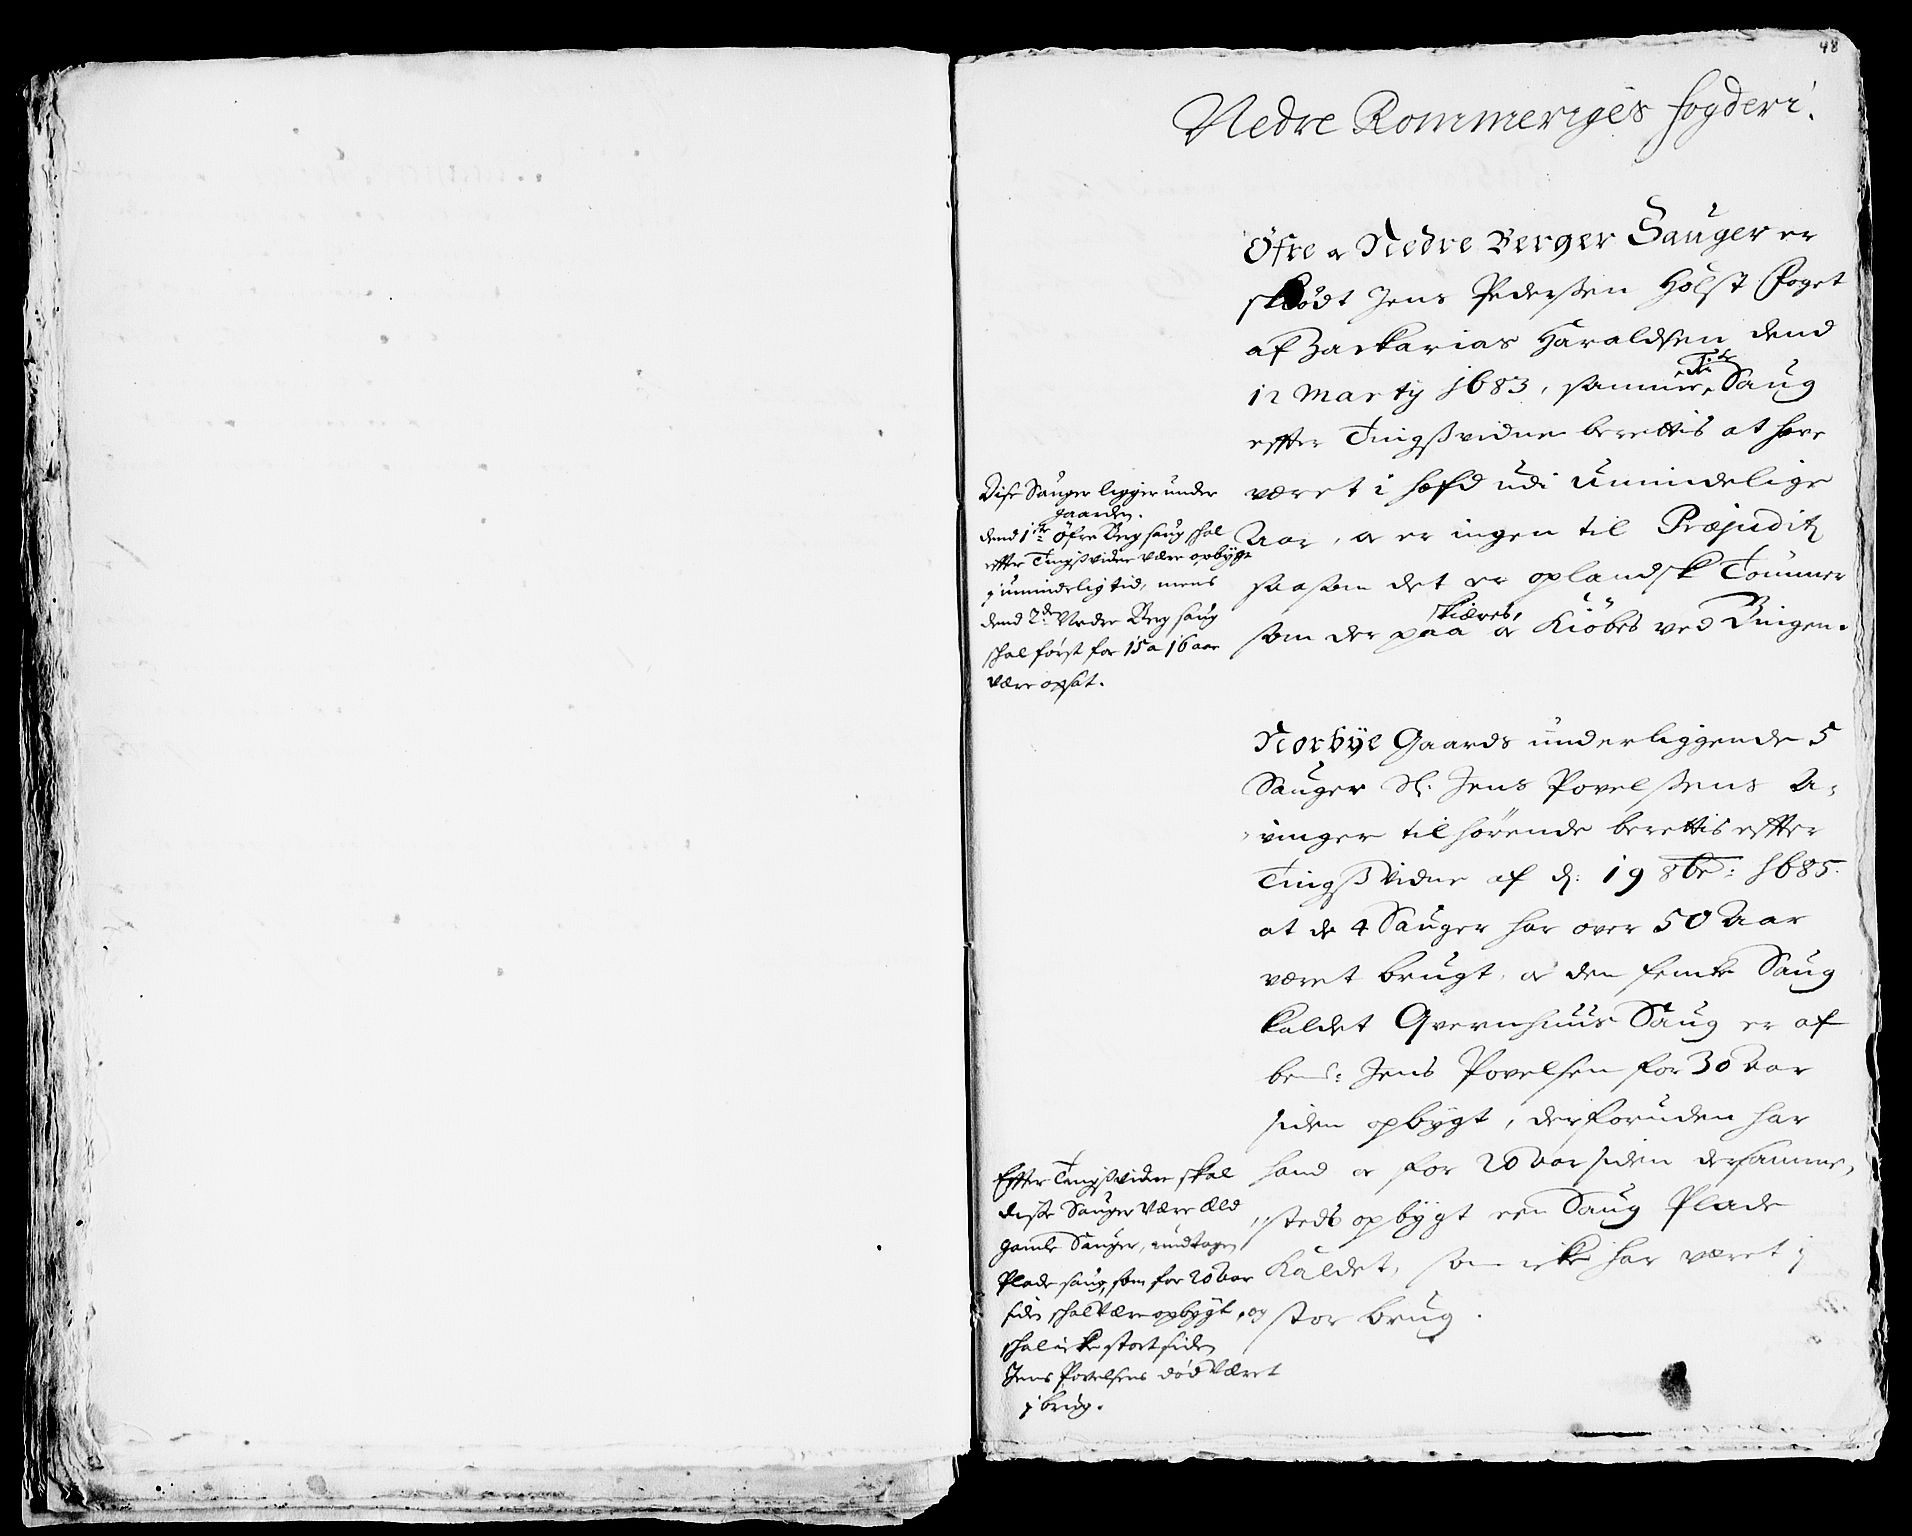 48
Nedre Rommeriges fogderi.
Öfre og Nedre Berger Sauger er
skiödt Jens Pederßen Holst Foget
af Zackarias Haraldsen dend
12 Marty 1683, samme Saug
effter Tingßvidne berettis at have
været i hæfd udi umindelige
Aar, og er ingen til Præjuditz
saasom det er oplandsk Tömmer
skiæres,
som der paa og Kiöbes ved Bingen.
Disse Sauger ligger under
gaarden.
dend 1ste Öfre Berg saug skal
effter Tingßvidne være opbygt
i umindelig tid, mens
dend 2den Nedre Berg saug
skal först for 15 a 16 aar
være opsat.
Norbÿe Gaards underliggende 5
Sauger Sl: Jens Povelßens A-
vinger tilhörende berettis effter
Tingßvidne af d: 19 8br: 1685.
at de 4 Sauger har over 50 Aar
været brugt, og den femte Saug
kaldet Qvernhuus Saug er af
bem: Jens Povelsen for 30 Aar
siden opbygt, derforuden har
hand og for 20 Aar siden dersamme,
steds opbygt een Saug Plade
Kaldet, som icke har været i
stor brug.
Effter Tingßvidne skal
disse Sauger være æld
gamle Sauger, undtagen
Plade saug, som for 20 Aar
siden skal være opbygt, og
skal icke stort siden
Jens Povelsens död været
i brug.